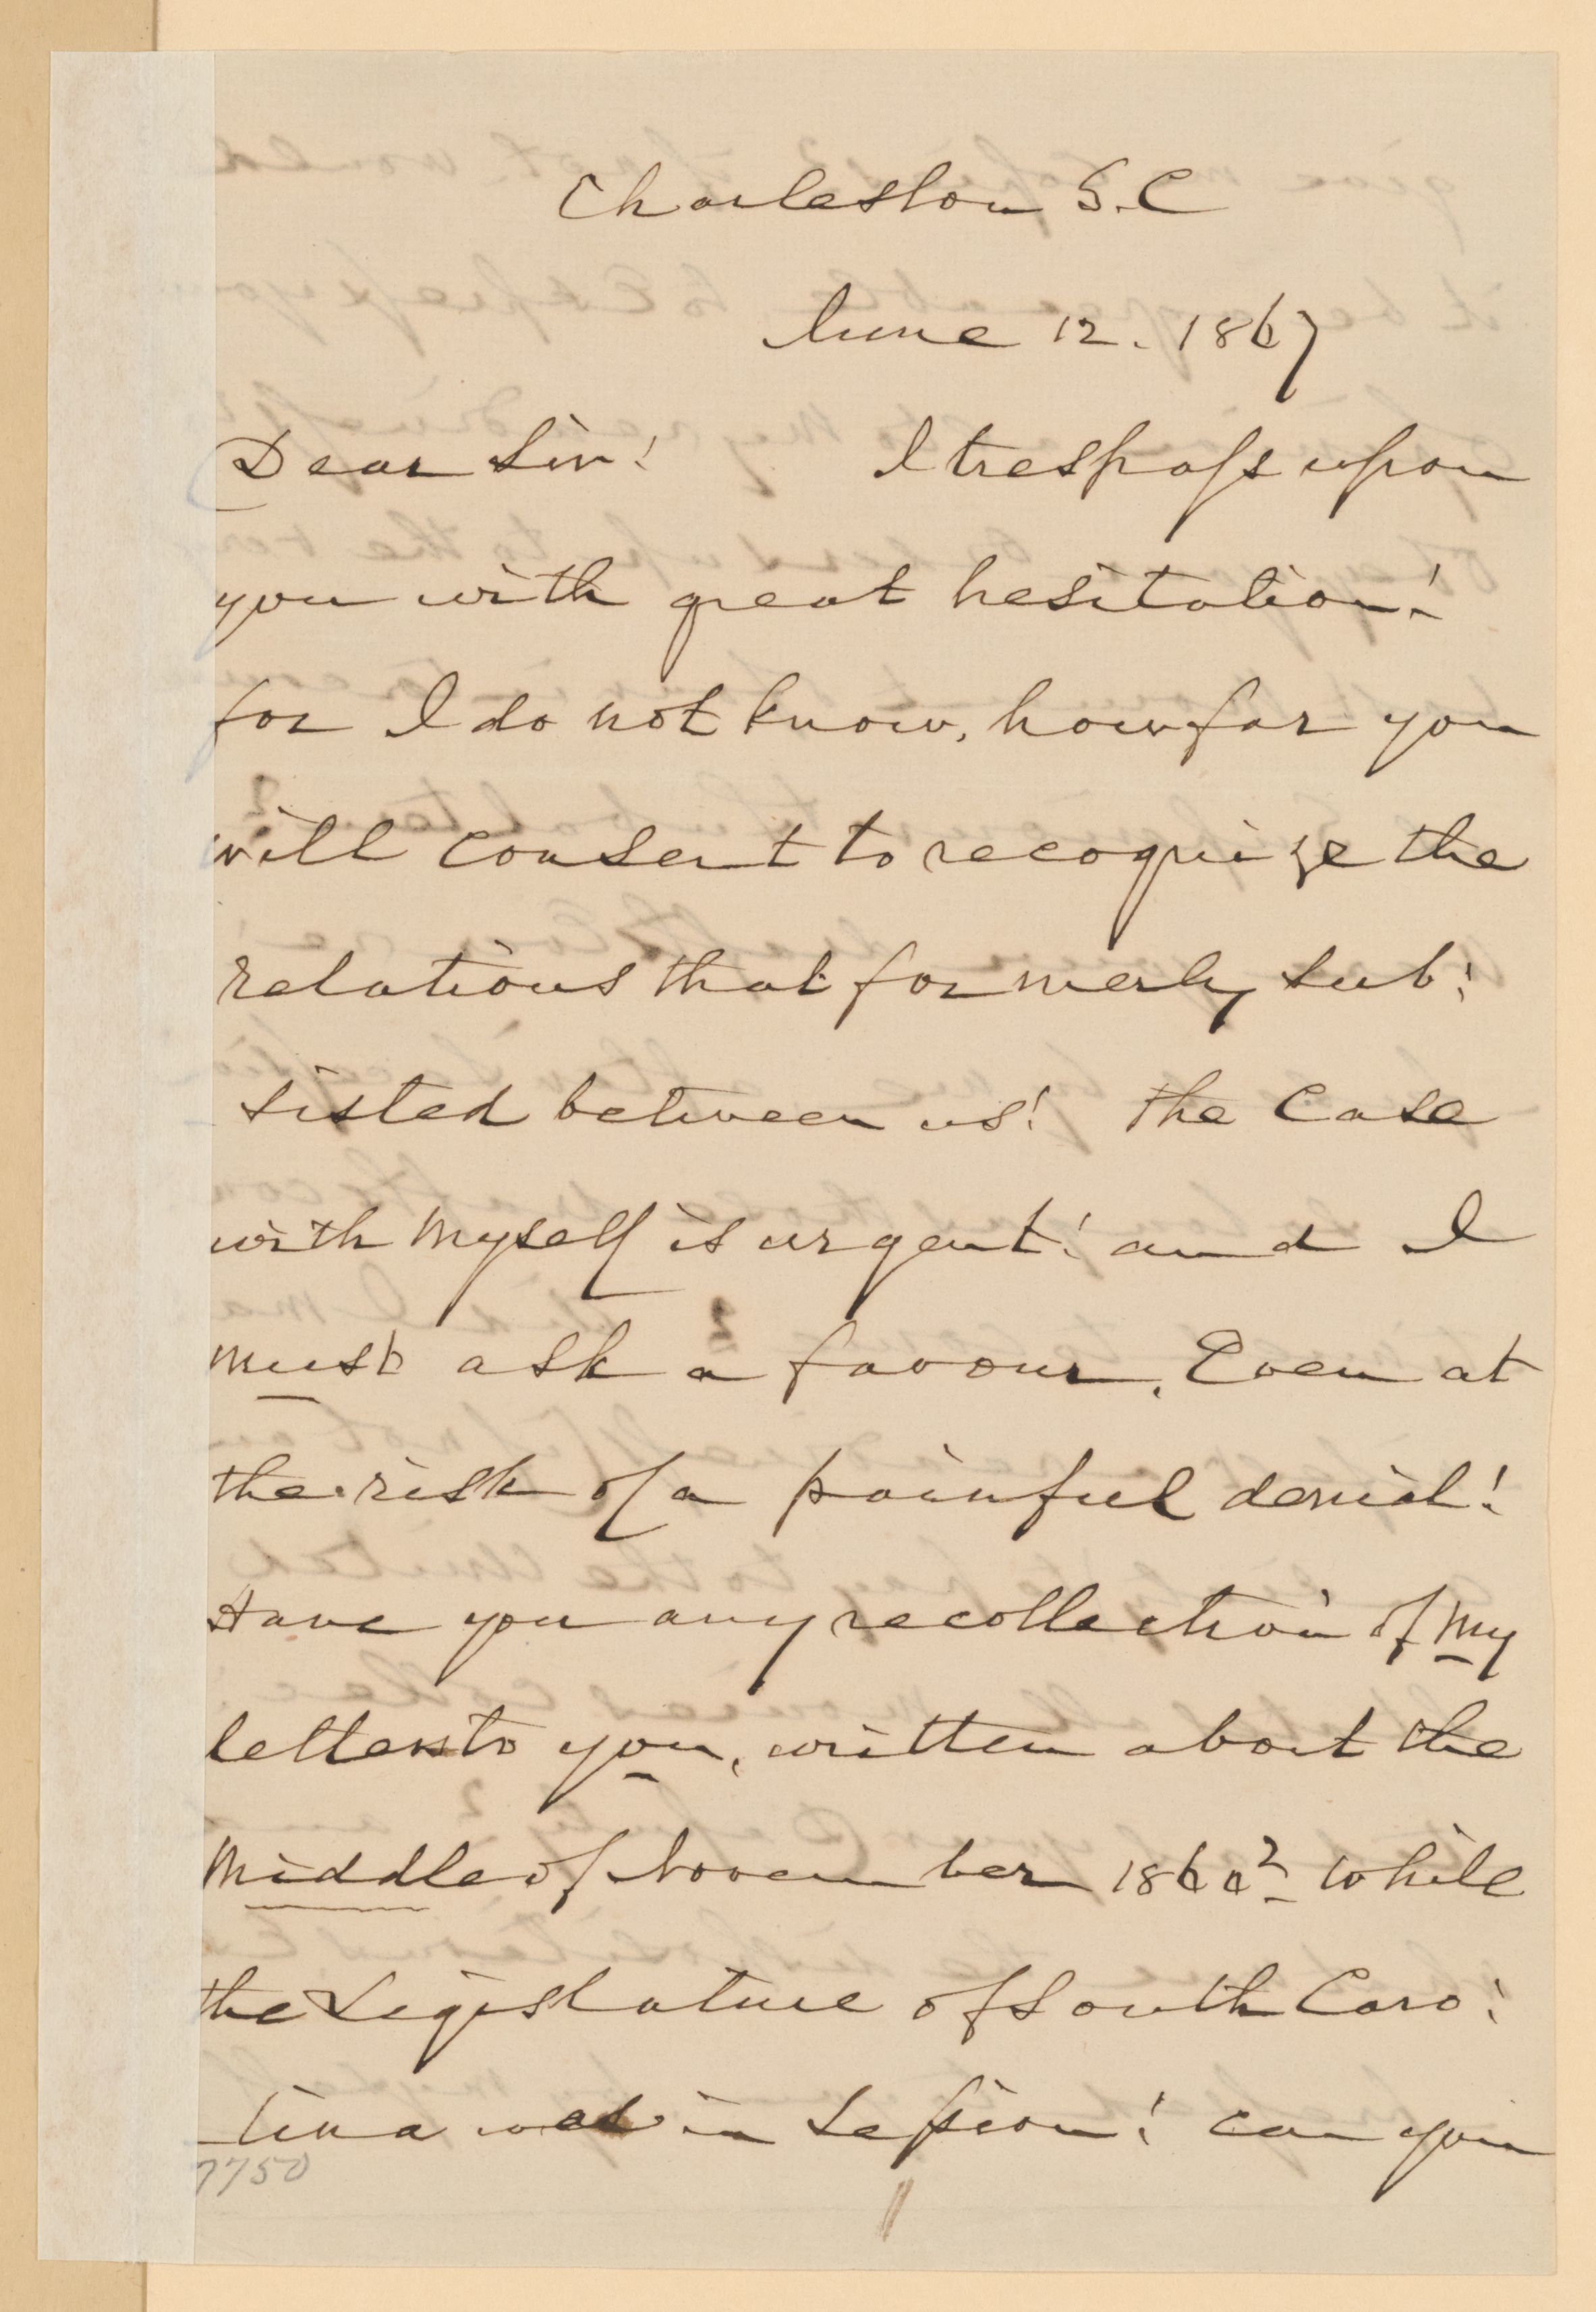 Charleston S.C
June 12. 1867
Dear Sir! I trespass upon
you with great hesitation!
for I do not know, how far you
will consent to recognize the
relations that formerly sub:
sisted between us! the case
with myself is urgent! and I
must ask a favour, Even at
the risk of a painful denial!
Have you any recollection of my
letters to you, written about the
middle of November 1860? while
the Legislature of South Caro:
lina was in Session! can you
7750